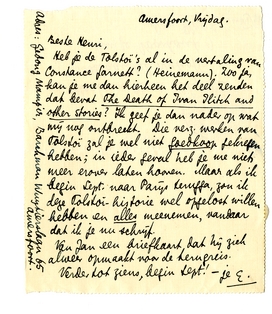 Amersfoort, Vrijdag.
Beste Henri,
Heb je de Tolstoï's al in de vertaling van
Constance Garnett? (Heinemann). Zoo ja,
kan je me dan hierheen het deel zenden
dat bevat The Death of Ivan Ilitch and
other stories? Ik geef je dan nader op wat
mij nog ontbreekt. Die verz. werken van
Tolstoï zal je wel niet goedkoop gekregen
hebben; in ieder geval heb je me niet
meer erover laten hooren. Maar als ik
begin Sept. naar Parijs terugga, zou ik
deze Tolstoï-historie wel opgelost willen
hebben en alles meenemen, vandaar
dat ik je nu schrijf.
Van Jan een briefkaart, dat hij zich
alweer opmaakt voor de terugreis.
Verder tot ziens, begin Sept! — je E.
Adres: Gebong Mampir, Barchman Wuytierslaan 65
Amersfoort.